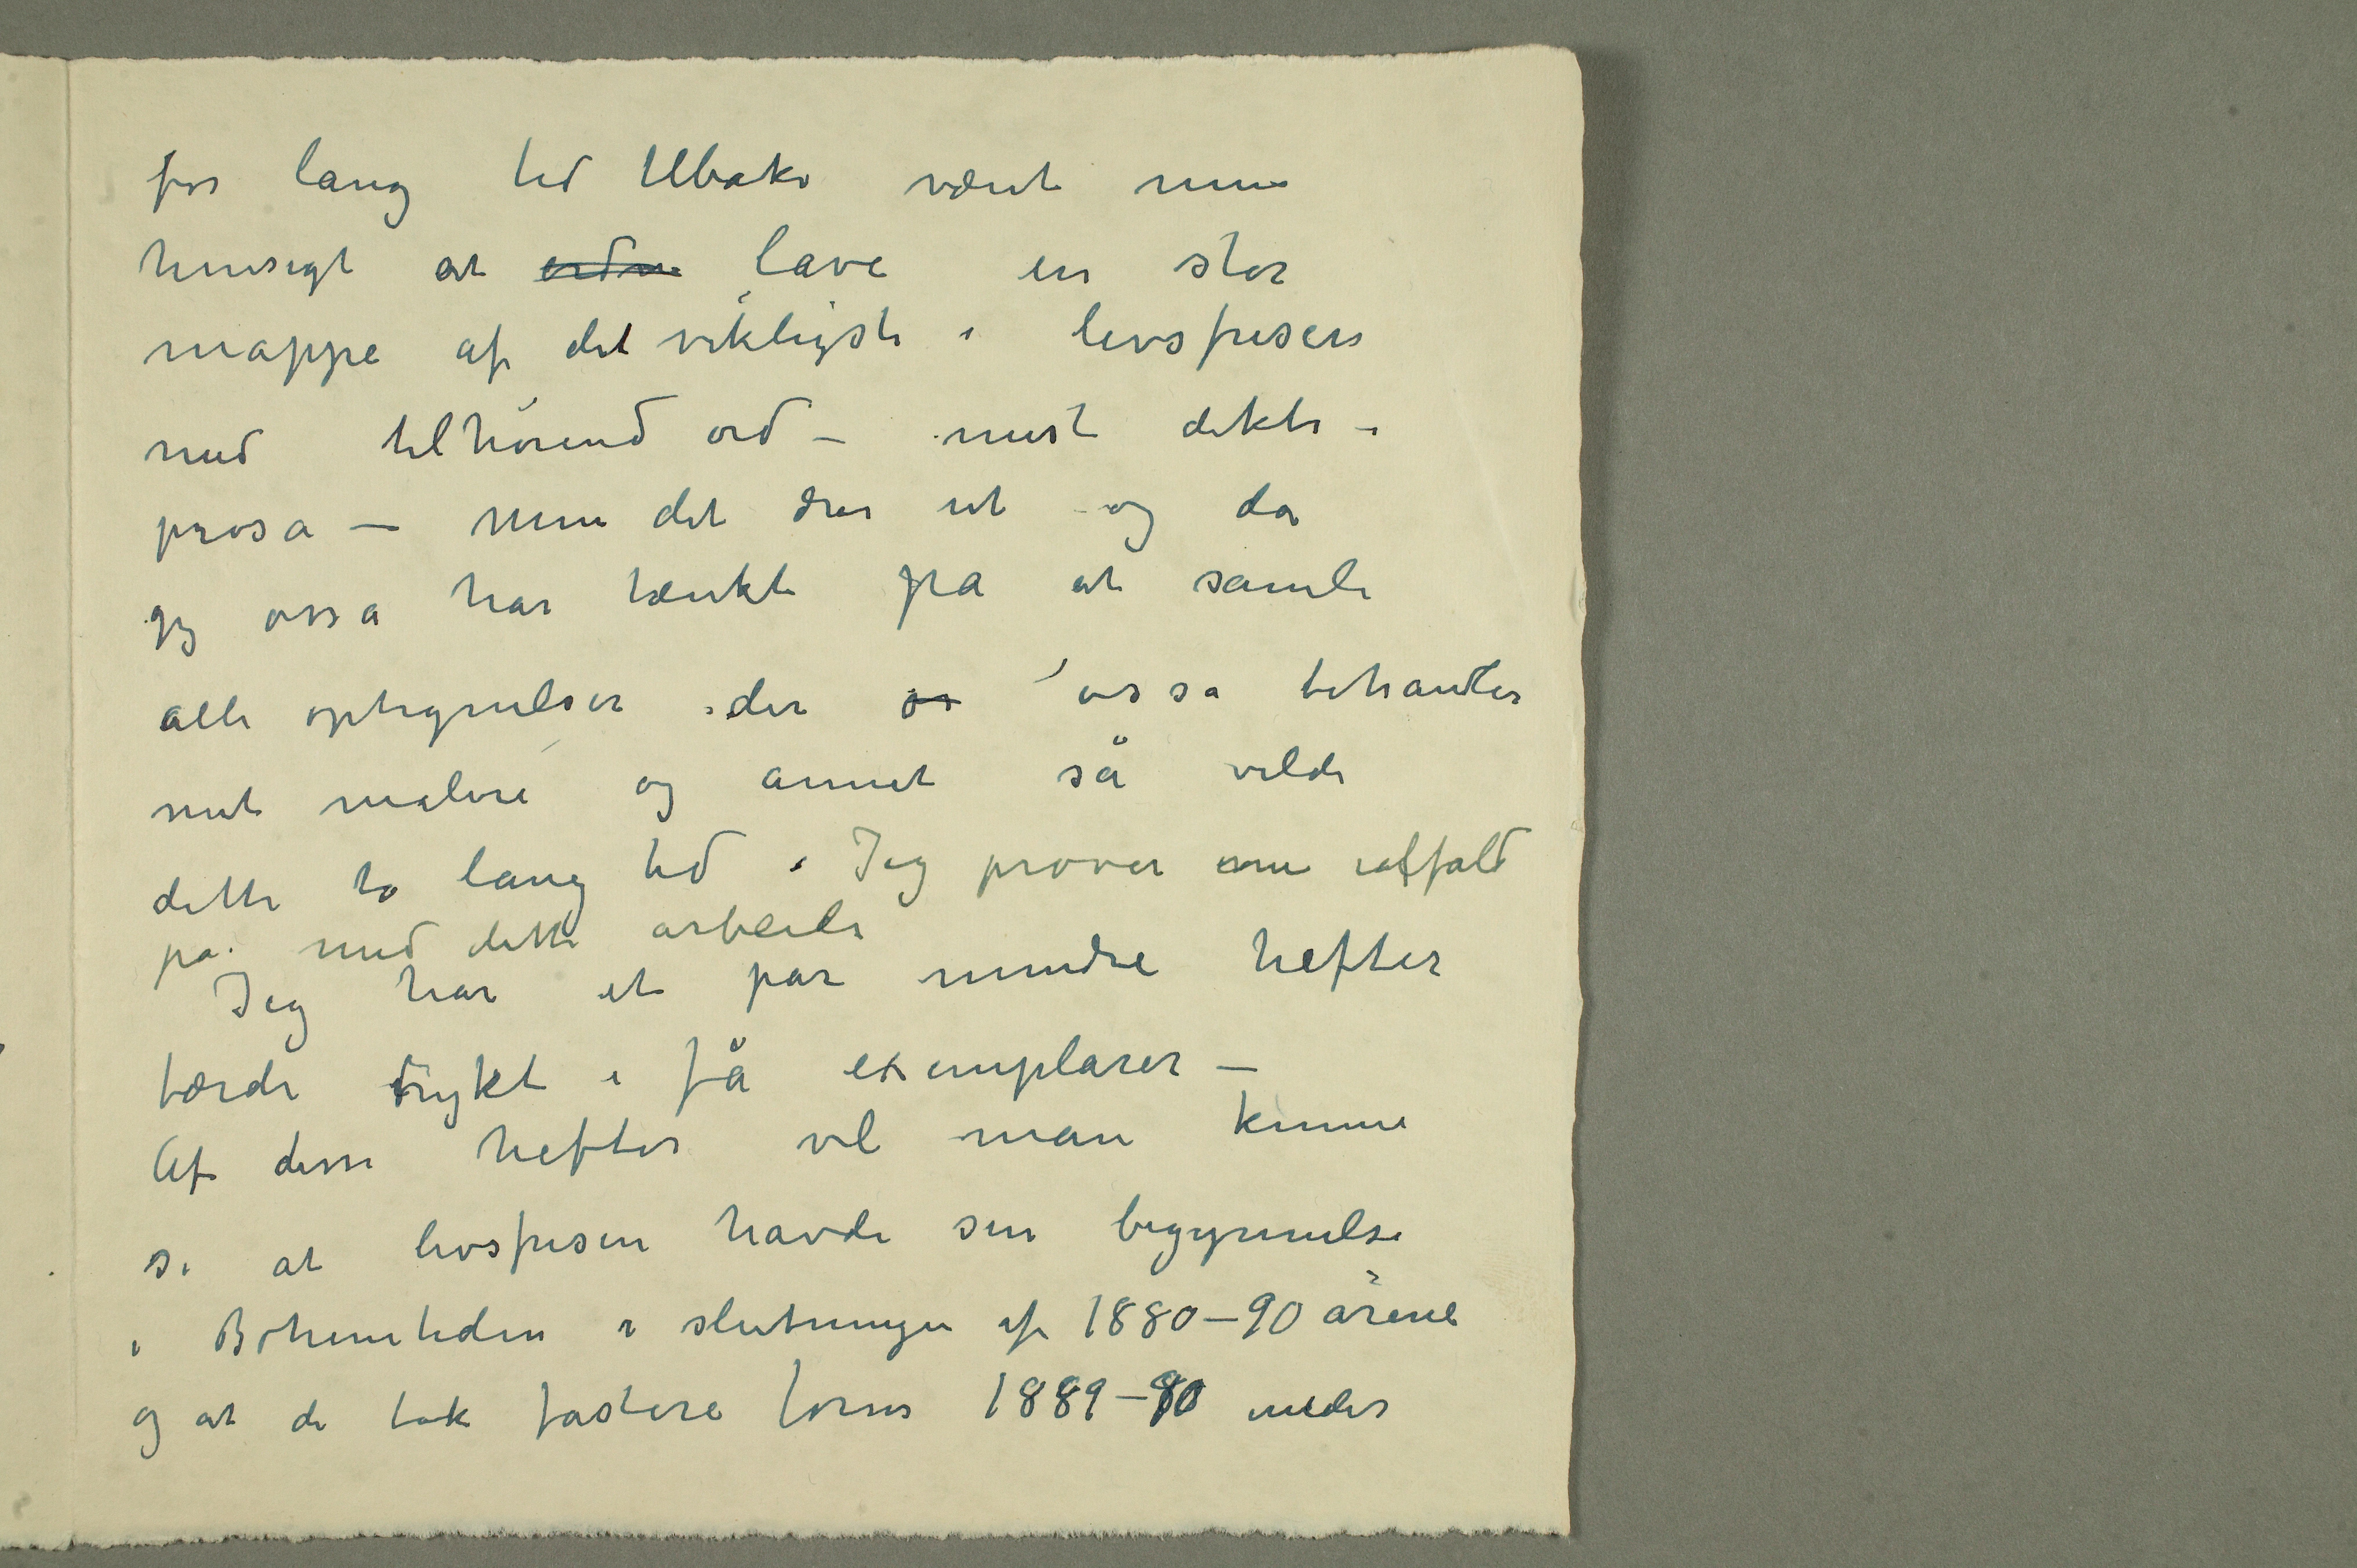 for lang tid tilbake vært min
hensigt at ordne lave en stor
mappe af det viktigste i livsfrisen
med tilhørend ord – mest dikte i
prosa – Men det drar ut og da
jeg osså har tænkt på at samle
alle optegnelser der os osså behandler
mit maleri og annet så vilde
dette ta lang tid . Jeg prøver nu ialfald
på med dette arbeide
Jeg har et par mindre hefter
færdi trykt i få exemplarer –
Af disse hefter vil man kunne
se at livsfrisen havde sin begynnelse
i Bohemetiden i slutningen af 1880–90 årene
og at de tok fastere form 1889–90 under